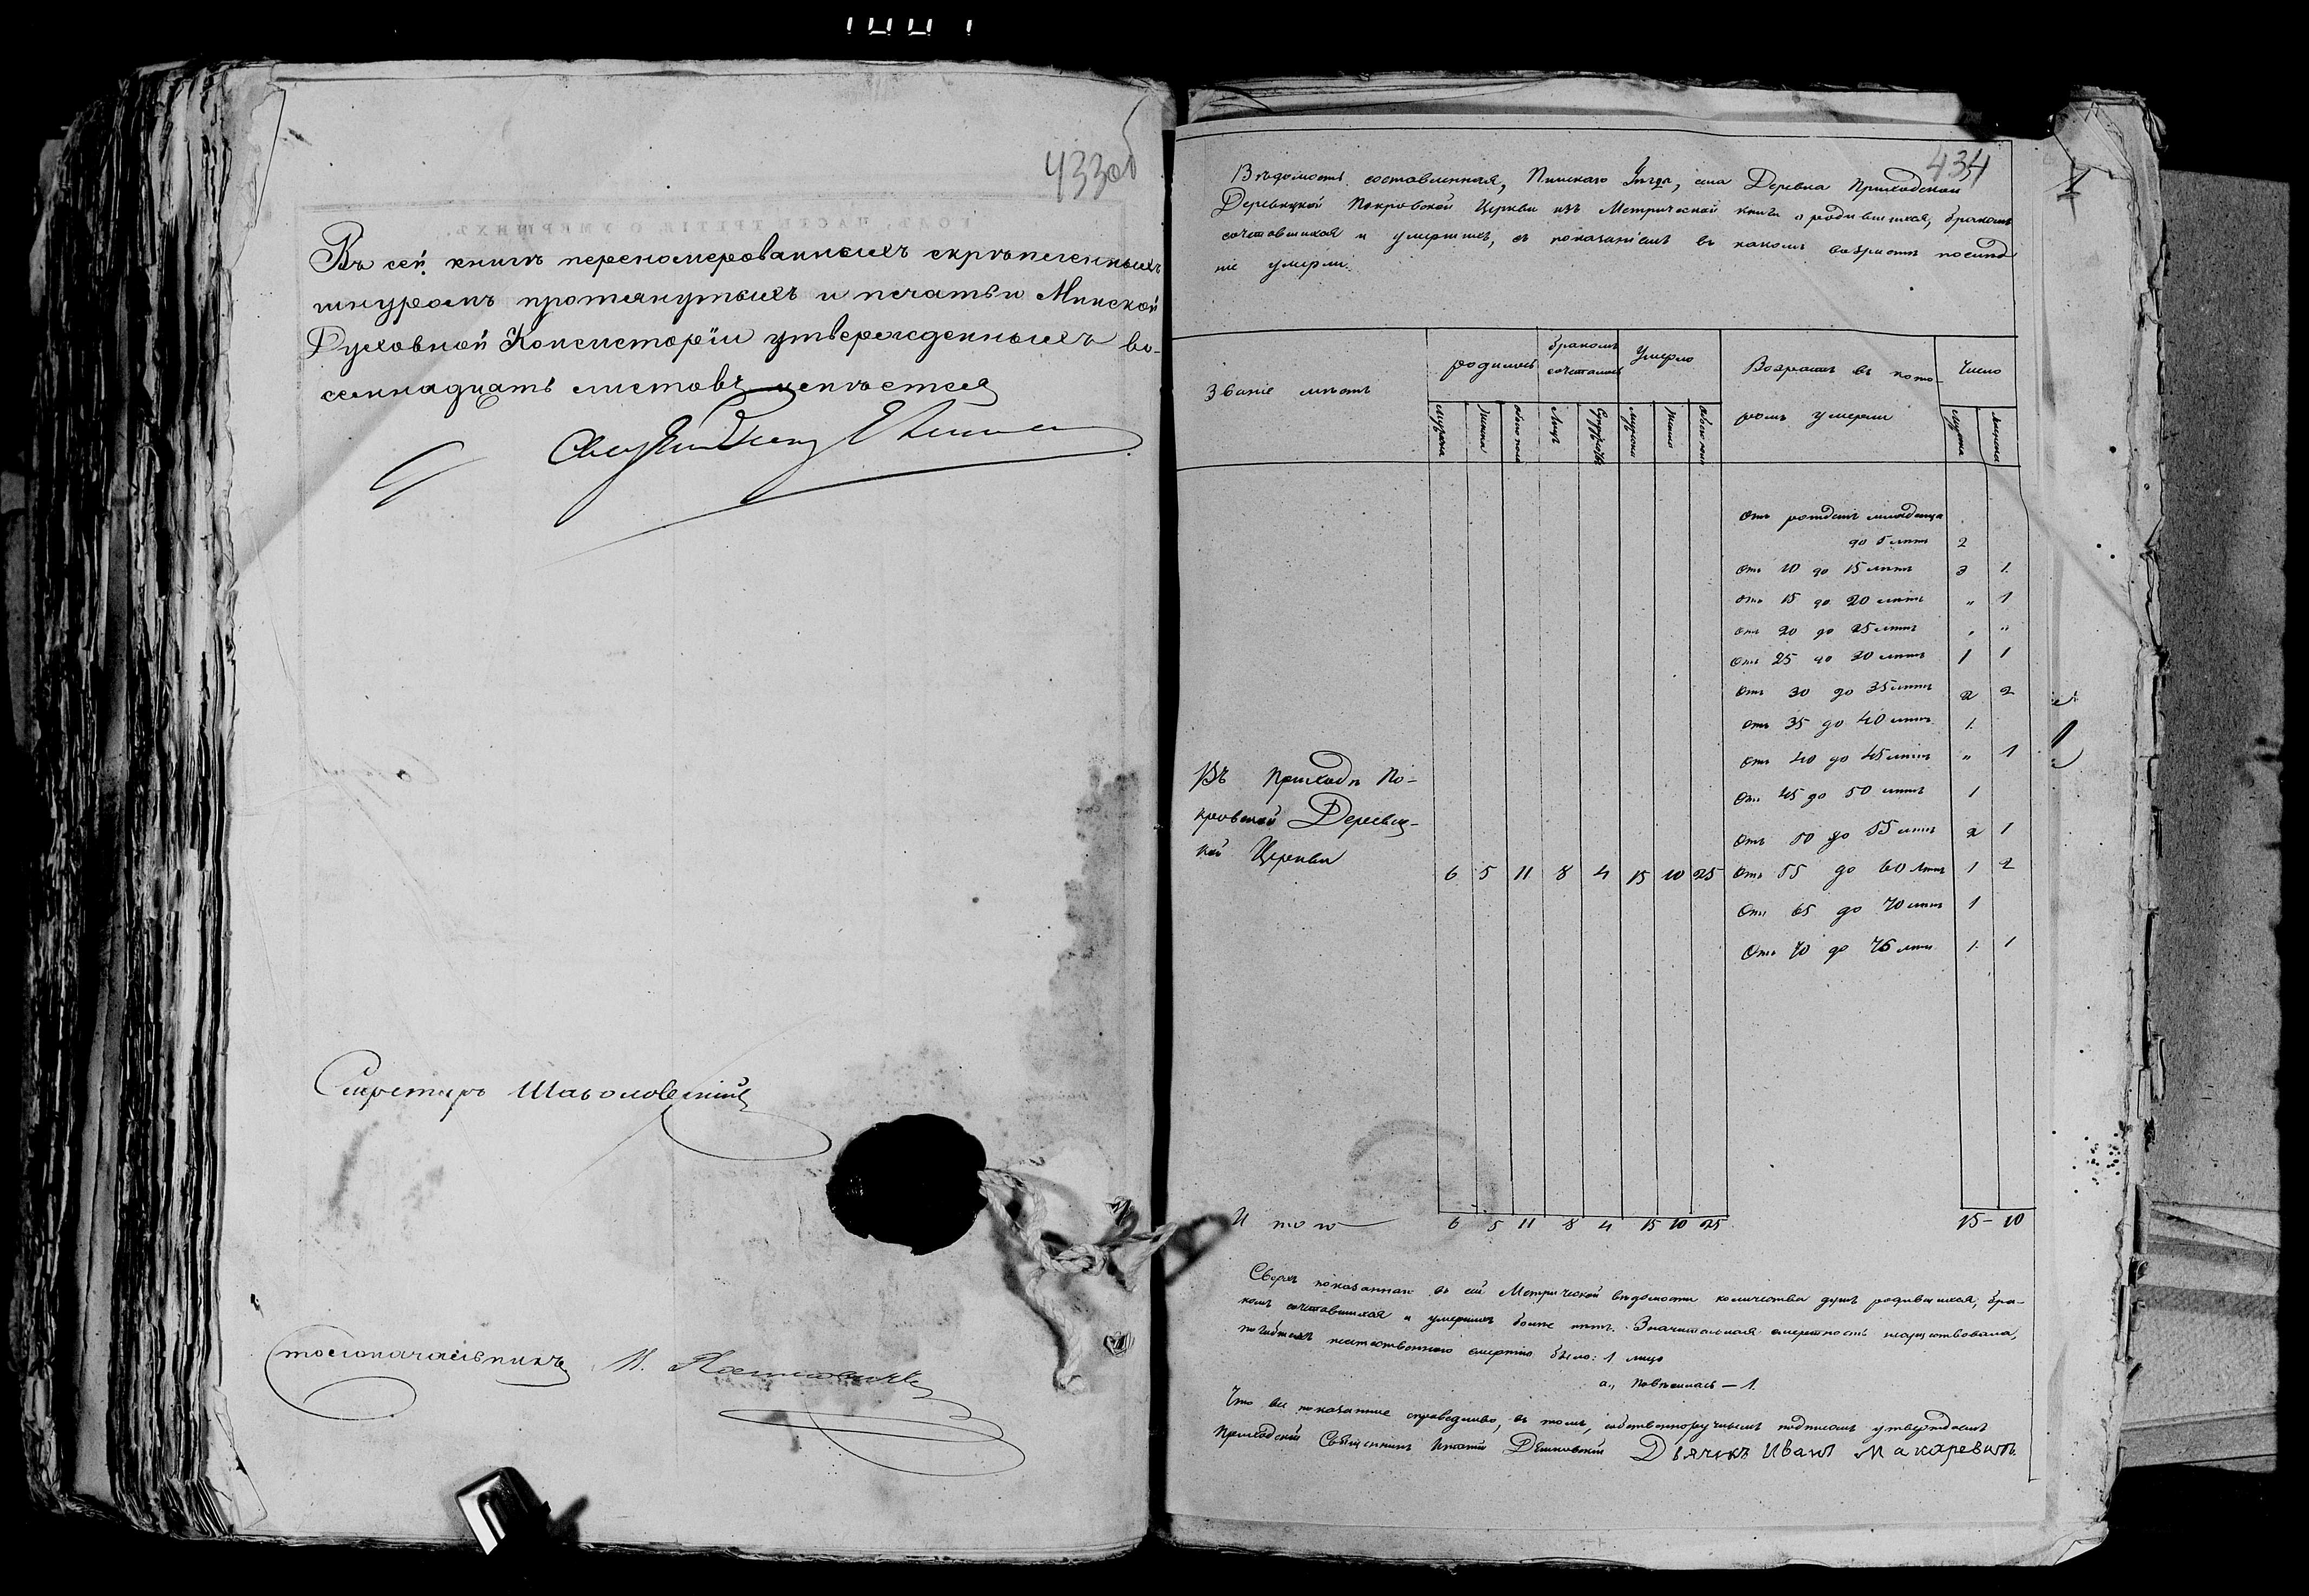 433 об
Въ сей книгѣ перенумерованныхъ скрѣпленныхъ
шнуромъ протянутыхъ и печатью Минской
Духовной Консисторіи утвержденныхъ во-
семнадцать листовъ
Секретарь
Столоначальникъ
434
1
Вѣдомость составленная, Пинскаго Уѣзда, села Деревна Приходской
Покровской Церкви изъ Метрической книги о родившихся, бракомъ
сочетавшихся и умершихъ, съ показаніемъ въ какомъ возрастѣ послѣд
ніе умерли.
Званіе мѣстъ
родилось
бракомъ
сочеталось
Умерло
Возрастъ въ кото-
ромъ умерли
Число
Отъ младенца
до 5 лѣтъ 2
Отъ 10 до 15 лѣтъ 3 1
Отъ 15 до 20 лѣтъ " 1
Отъ 20 до 25 лѣтъ " "
Отъ 25 до 30 лѣтъ 1 1
Отъ 30 до 35 лѣтъ 2 2
Отъ 35 до 40 лѣтъ 1
Отъ 40 до 45 лѣтъ " 1
Отъ 45 до 50 лѣтъ 1
Отъ 50 до 55 лѣтъ 2 1
Въ Приходѣ По-
кровской Деревц-
кой Церкви
6 5 11 8 4 15 10 25 Отъ 55 до 60 лѣтъ 1 2
Отъ 65 до 70 лѣтъ 1
Отъ 70 до 75 лѣтъ 1 1
Итого 6 5 11 8 4 15 10 25 15 - 10
Сверхъ въ сей Метрической вѣдомости количества душъ родившихся, бра-
комъ сочетавшихся и умершихъ болѣе нѣтъ. Значительная смертность
смертію было: 1 лицо
а., повѣсилась — 1.
Что все показанное справедливо, въ томъ, собственноручнымъ подписомъ утверждаемъ
Приходскій Священникъ Дьячекъ Иванъ Макаревичъ